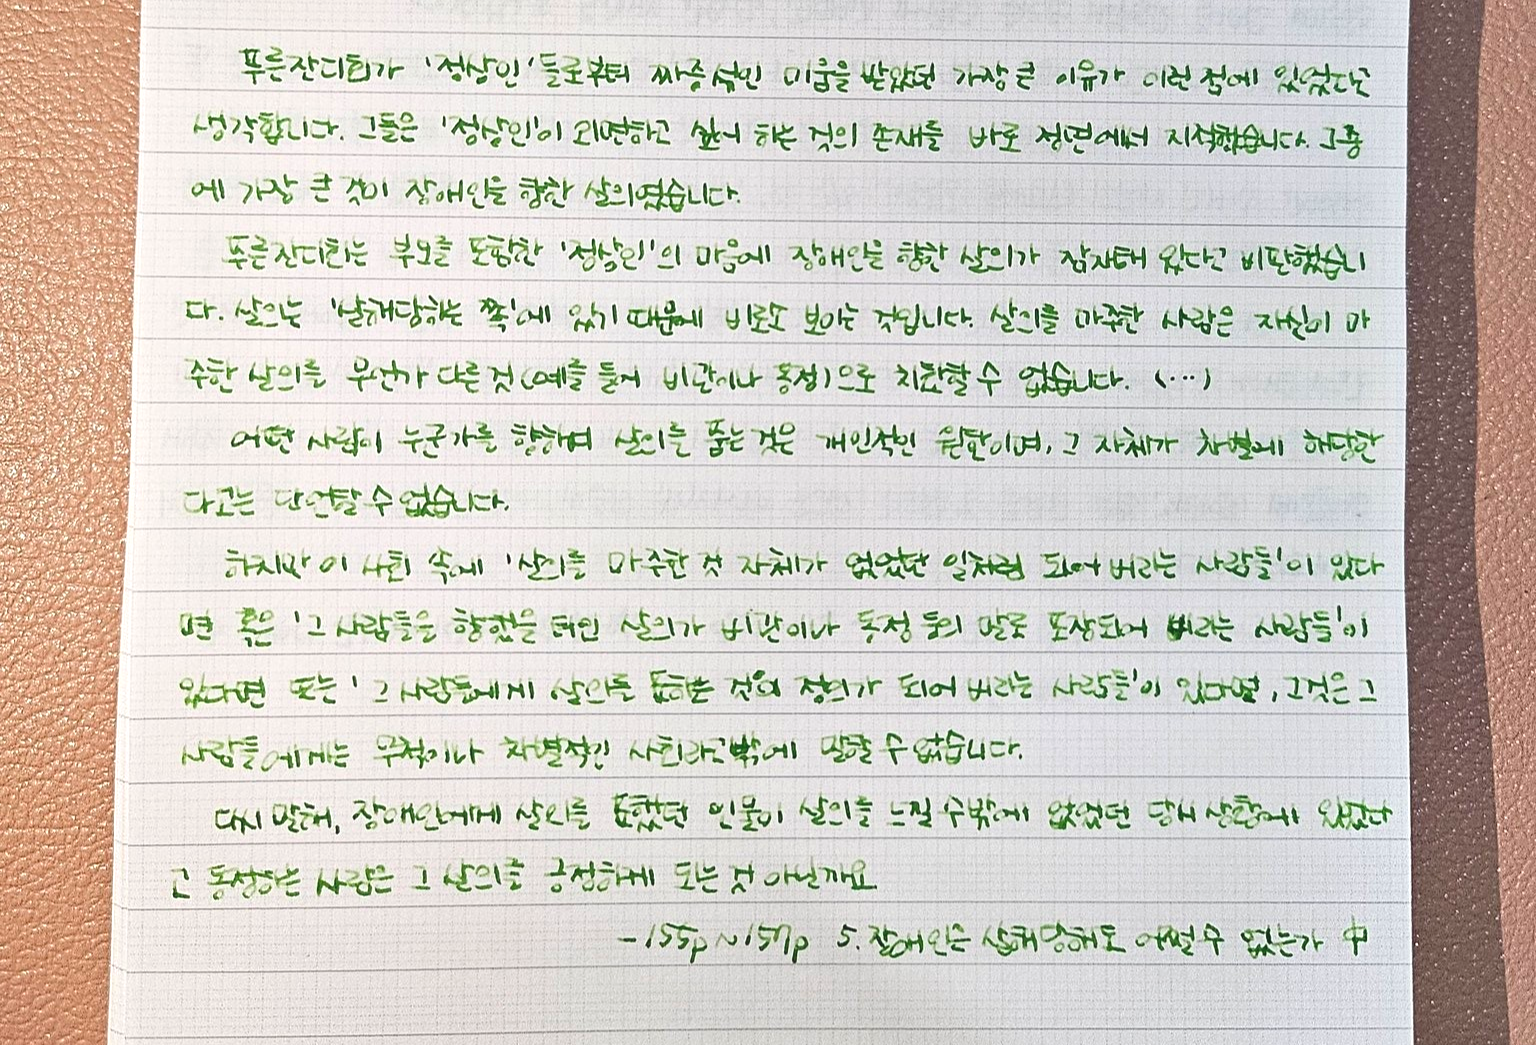 푸른잔디회가 '정상인'들로부터 짜증섞인 미움을 받았던 가장 큰 이유가 이런 점에 있었다고
생각합니다. 그들은 '정상인'이 외면하고 싶어 하는 것의 존재를 바로 정면에서 지적했습니다. 그중
에 가장 큰 것이 장애인을 향한 살의였습니다.
푸른잔디회는 부모를 포함한 '정상인'의 마음에 장애인을 향한 살의가 잠재해 있다고 비판했습니
다. 살의는 '살해당하는 쪽'에 있기 때문에 비로소 보이는 것입니다. 살의를 마주한 사람은 자신이 마
주한 살의를 무언가 다른 것(예를 들어 비관이나 동정)으로 치환할 수 없습니다. (…)
어떤 사람이 누군가를 향하여 살의를 품는 것은 개인적인 원한이며, 그 자체가 차별에 해당한
다고는 단언할 수 없습니다.
하지만 이 사회 속에 '살의를 마주한 것 자체가 없었던 일처럼 되어 버리는 사람들'이 있다
면 혹은 '그 사람들을 향했을 터인 살의가 비관이나 동정 등의 말로 포장되어 버리는 사람들'이
있다면 또는 '그 사람들에게 살의를 품는 것의 정의가 되어 버리는 사람들'이 있다면, 그것은 그
사람들에게는 무척이나 차별적인 사회라고밖에 말할 수 없습니다.
다시 말해, 장애인에게 살의를 품했던 인물이 살의를 느낄 수밖에 없었던 당시 상황에 있었다
고 동정하는 사람은 그 살의를 긍정하게 되는 것 아닐까요
-155p~157p 5. 장애인은 살해당해도 어쩔 수 없는가 中